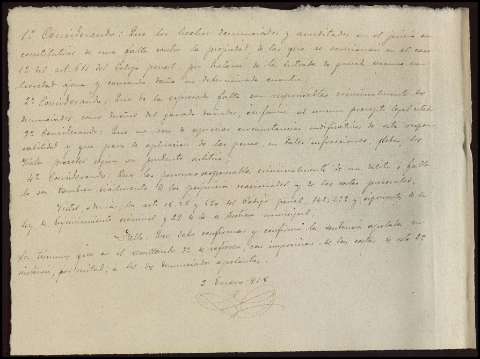 1º Considerando: Que los hechos denunciados y acreditados en el juicio son
constitutivos de una falta contra la propiedad de las que se sancionan en el caso
12 del art. 611 del Código penal, por tratarse de la entrada de ganado
propiedad ajena y causando daño en determinada cuantía.
2º Considerando: Que de la expresada falta son responsables criminalmente los
denunciados como dueños del ganado dañador, conforme al mismo precepto legal
3º Considerando: Que no son de apreciar circunstancias modificativas de esta respon-
sabilidad y que para la aplicación de las penas en tales infracciones, deben los
Tribunales proceder según su prudente arbitrio.
4º Considerando: Que las personas responsables criminalmente de un delito o falta
lo son también civilmente de los perjuicios ocasionados y de las costas procesales.
Vistos además, los art. y 620 del Código penal, y siguientes de la
ley de Enjuiciamiento criminal y de la de Justicia municipal.
Fallo: Que debo confirmar y confirmo la sentencia apelada en
los términos que en el resultando 2º se refieren, con imposición de las costas de esta 2ª
instancia, por mitad, a los denunciados apelantes.
2 Enero 918